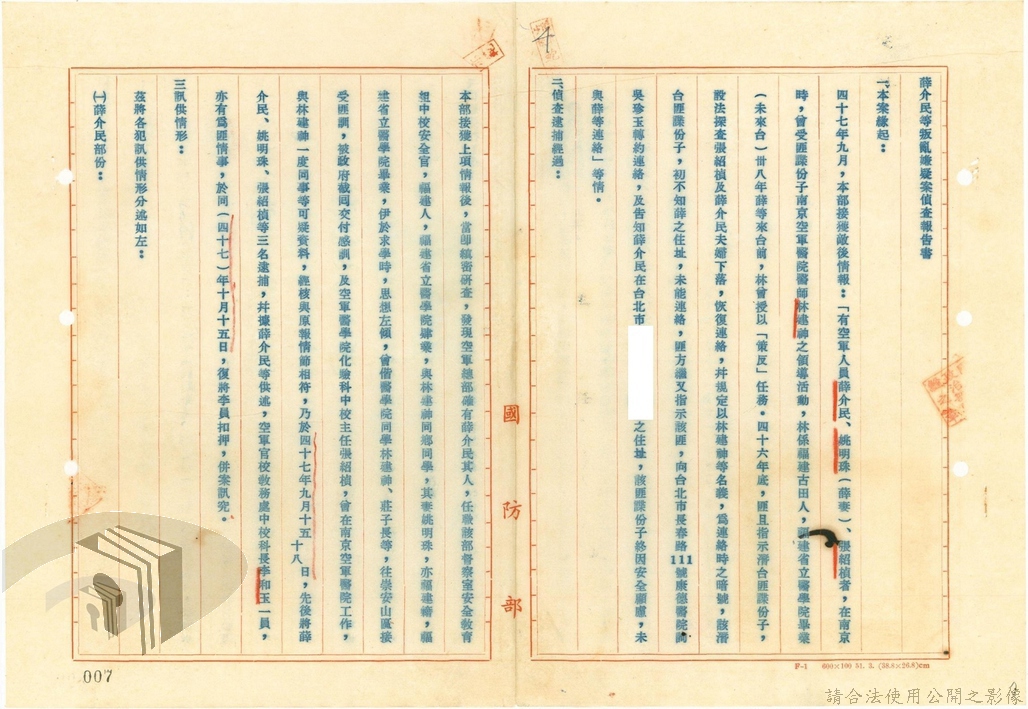 4
薛介民等叛亂嫌疑案偵查報告書
一、本案緣起：
四十七年九月，本部接獲敵後情報：「有空軍人員薛介民、姚明珠（薛妻）、張紹楨者，在南京
時，曾受匪諜份子南京空軍醫院醫師林建神之領導活動，林係福建古田人，福建省立醫學院畢業
（未來台）卅八年薛等來台前，林曾授以「策反」任務。四十六年底，匪且指示潛台匪諜份子，
設法探查張紹楨及薛介民夫婦下落，恢復連絡，并規定以林建神等名義，為連絡時之暗號，該潛
台匪諜份子，初不知薛之住址，未能連絡，匪方繼又指示該匪，向台北市長春路111號康德醫院
吳珍玉轉約連絡，及告知薛介民在台北市
之住址，該匪諜份子終因安全顧慮，未
與薛等連絡」等情。
二、偵查逮捕經過：
本部接獲上項情報後，當即縝密研查，發現空軍總部確有薛介民其人，任職該部督察室安全教育
組中校安全官，福建人，福建省立醫學院肄業，與林建神同鄉同學，其妻姚明珠，亦福建籍，福
建省立醫學院畢業，伊於求學時，思想左傾，曾偕醫學院同學林建神、莊子長等，往崇安山區接
受匪訓，被政府截回交付感訓，及空軍醫學院化驗科中校主任張紹楨，曾在南京空軍醫院工作，
與林建神一度同事等可疑資料，經核與原報情節相符，乃於四十七年九月十五
十八日，先後將薛
介民、姚明珠、張紹楨等三名逮捕，并據薛介民等供述，空軍官校教務處中校科長李和玉一員，
亦有為匪情事，於同（四十七）年十月十五日，復將李員扣押，併案訊究。
三、訊供情形：
茲將各犯訊供情形分述如左：
㈠薛介民部份：
國防部
F-1 600×100 51. 3. (38.8×26.8)cm
007
請合法使用公開之影像